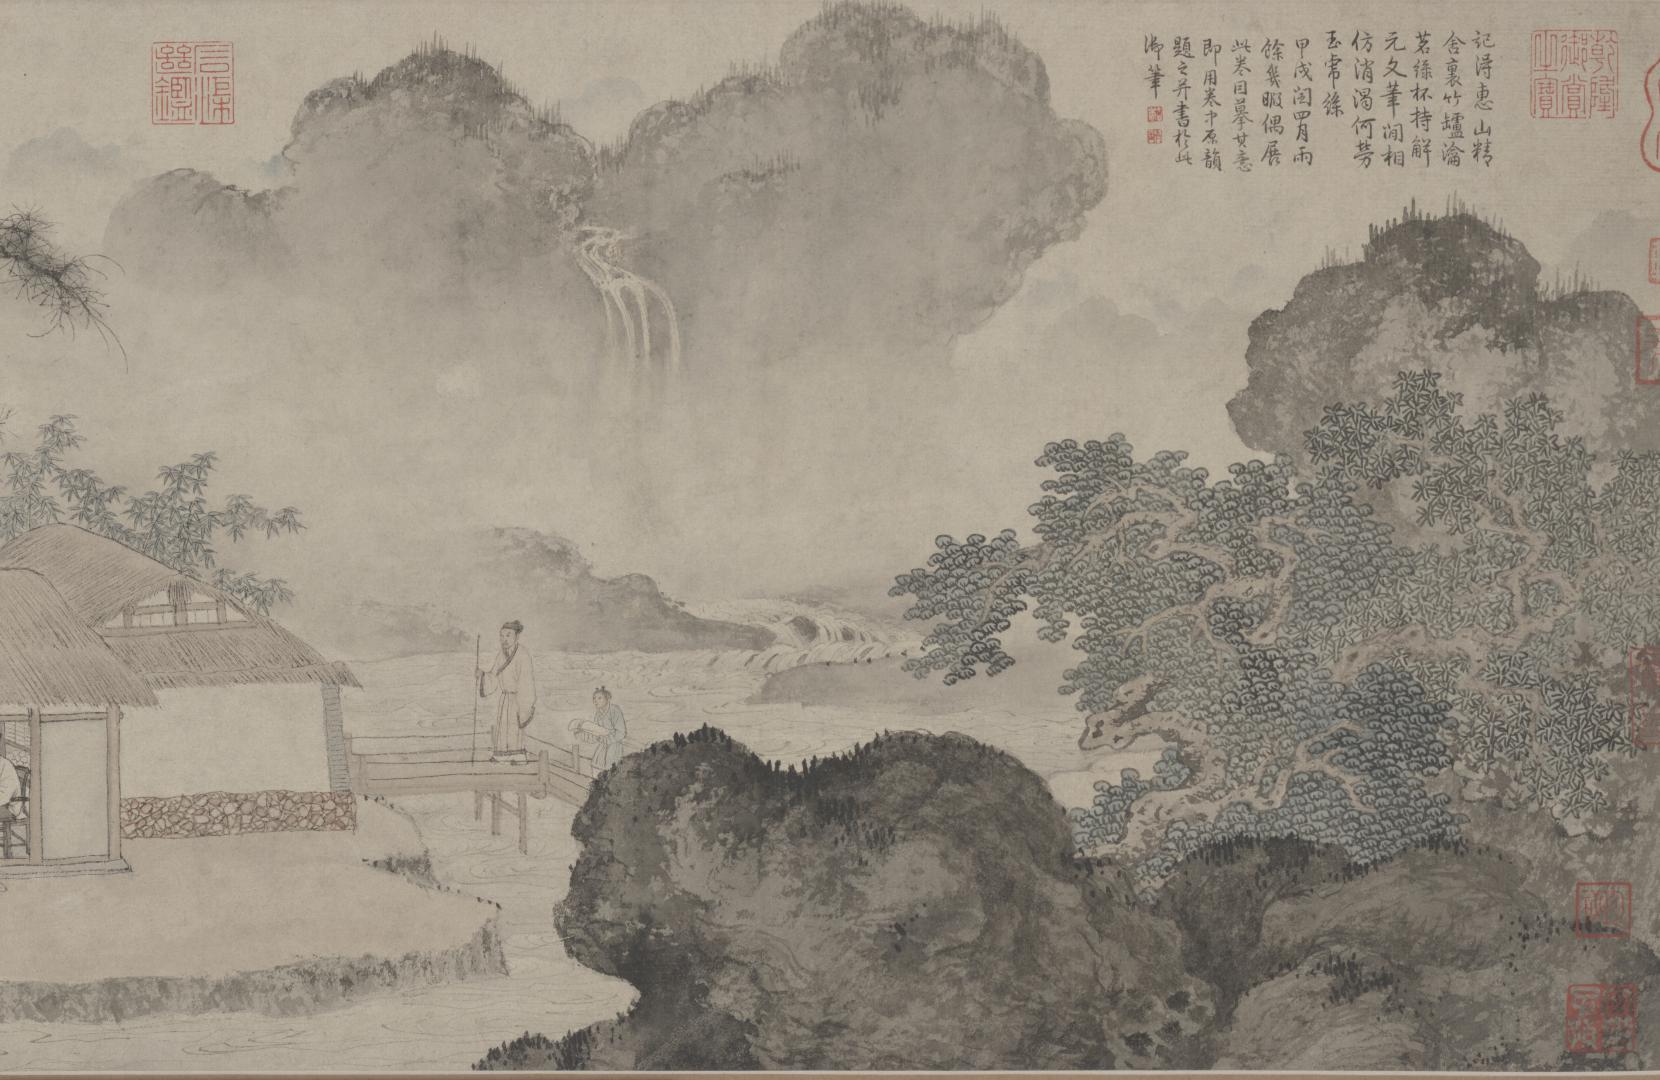 乾隆御賞之寶
記得惠山精
舍裏竹罏瀹
茗綠杯持解
元文筆閒相
仿消渴何勞
玉虎絲
甲戌閏四月雨
餘幾暇偶展
此卷因摹其意
即用卷中原韻
題之并書於此
御筆